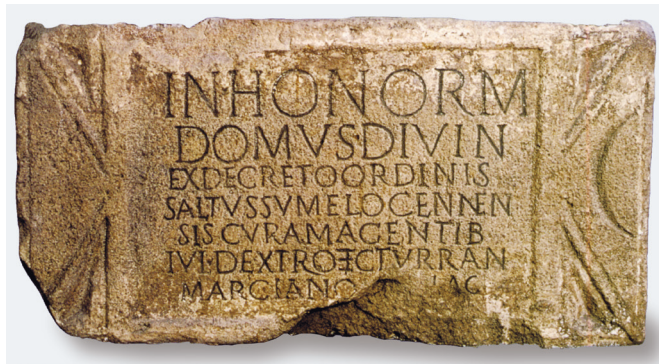 IN·HONORM
DOMVS·DIVIN
EX DECRETO ORDINIS
SALTVS SVMELOCENNEN
SIS CVRAM AGENTIB
IVL·DEXTRO ET C TVRRAN
MARCIANO